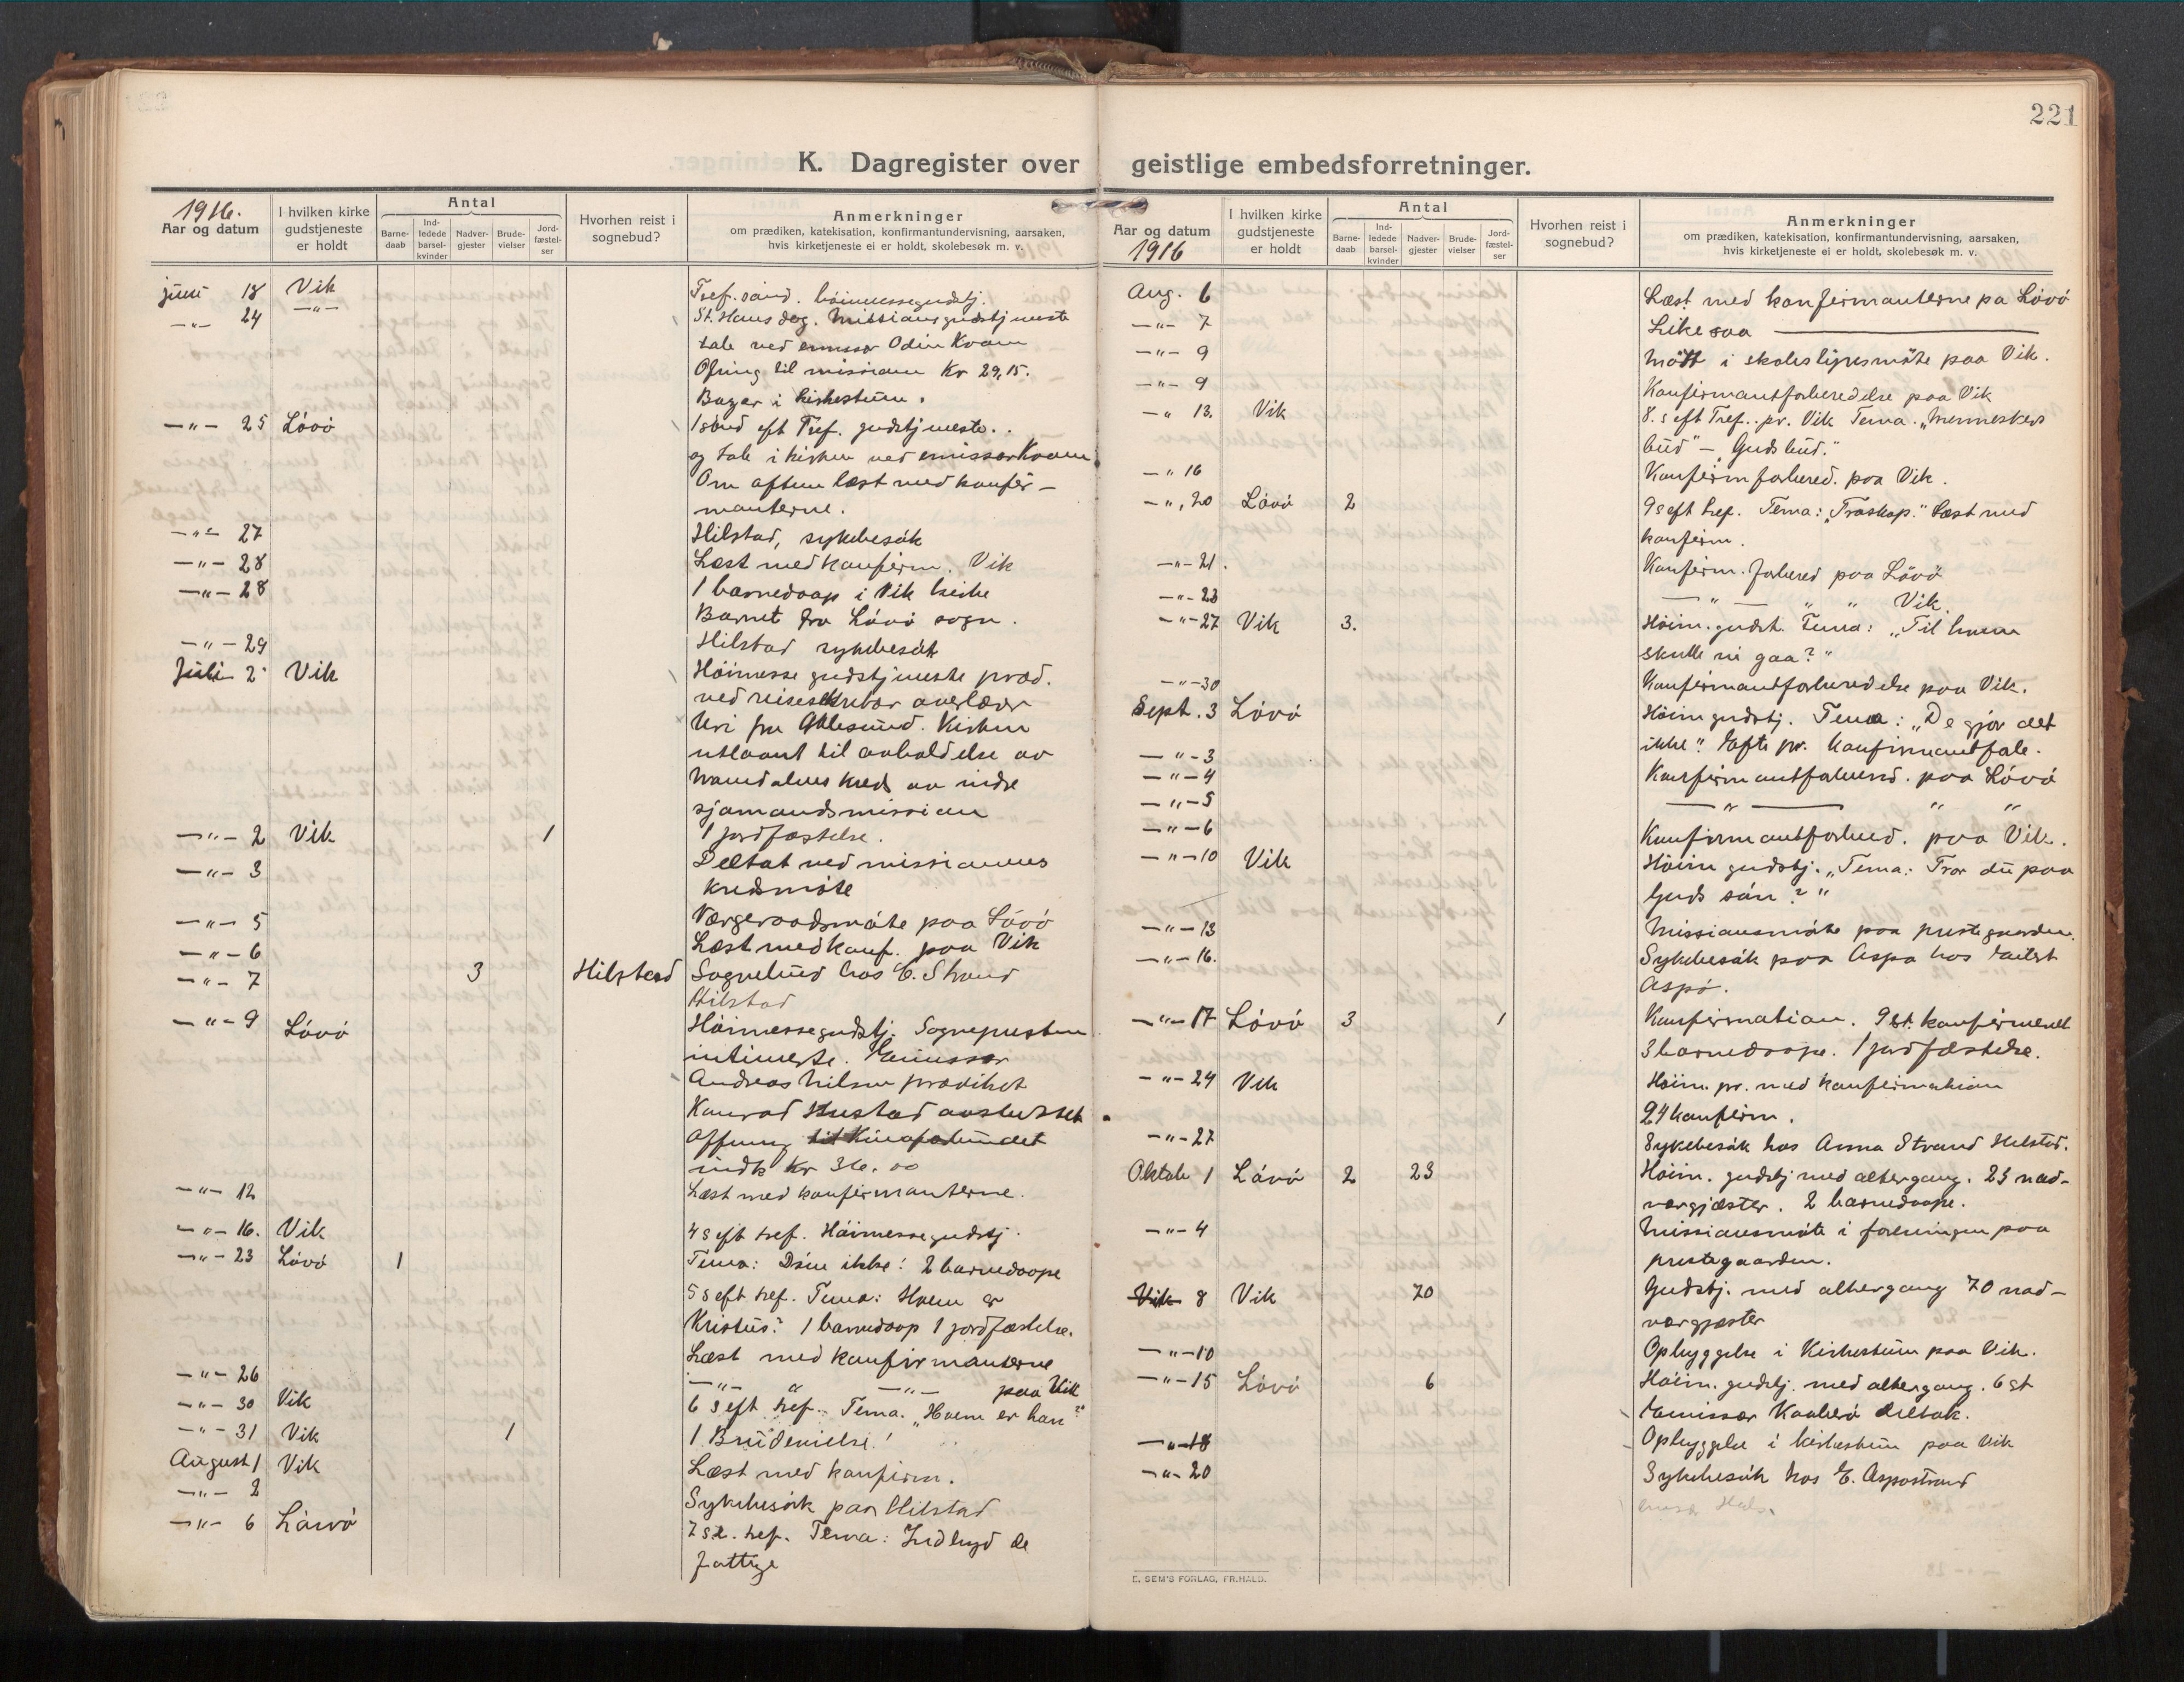 221
K. Dagregister over geistlige embedsforretninger.
1916.
Aar og datum
I hvilken kirke gudstjeneste er holdt
Antal
Barne-daab
Ind-ledede barsel-kvinder
Nadver-gjester
Brude-vielser
Jord-fæstel-ser
Hvorhen reist i sognebud?
Anmerkninger
om prædiken, katekisation, konfirmantundervisning, aarsaken,
hvis kirketjeneste ei er holdt, skolebesøk m. v.
juni 18 Vik Tref. sönd. höimessegudstj.
—"— 24 —"— St. Hans dag. Missionsgudstjeneste
tale ved emissær Odin Kvam
Ofring til missionen Kr 29,15.
Bazar i kirkestuen.
—"— 25 Lövö 1 sönd eft Tref. gudstjeneste.
og tale i kirken ved emissær Kvam
Om aften læst med konfir-
manterne.
—"— 27 Hilstad, sykebesök
—"— 28 Læst med konfirm. Vik
—"— 28 1 barnedaap i Vik kirke
Barnet fra Lövö sogn.
—"— 29 Hilstad sykebesök
Juli 2 Vik Höimesse gudstjeneste præd.
ved reisesekretær overlærer
Uri fra Aalesund. Kirken
utlaant til avholdelse av
Namdalens kreds av indre
sjømandsmission
—"— 2 Vik 1 1 jordfæstelse.
—"— 3 Deltat ved missionens
kredsmöte
—"— 5 Værgeraadsmöte paa Lövö
—"— 6 Læst med konf. paa Vik
—"— 7 3 Hilstad Sognebud hos E. Strand
Hilstad
—"— 9 Lövö Höimessegudstj. Sognepresten
intimerte. Emissær
Andreas Nilsen prædiket
Konrad Hustad avsluttet
Offring til Kinaforbundet
indk Kr 36.00
—"— 12 Læst med konfirmanterne.
—"— 16. Vik 4 s eft tref. Höimessegudstj.
Tema: Döm ikke! 2 barnedaape
—"— 23 Lövö 1 5 s eft tref. Tema: Hvem er
Kristus? 1 barnedaap 1 jordfæstelse.
Læst med konfirmanterne
—"— 26 —"— " —"— paa Vik
—"— 30 Vik 6 s eft tref. Tema. "Hvem er han?"
—"— 31 Vik 1 1 Brudevielse!
August 1 Vik Læst med konfirm.
—"— 2 Sykebesök paa Hilstad
—"— 6 Lövö 7 s e. tref. Tema: Indbyd de
fattige
Aar og datum
1916
I hvilken kirke gudstjeneste er holdt
Antal
Barne-daab
Ind-ledede barsel-kvinder
Nadver-gjester
Brude-vielser
Jord-fæstel-ser
Hvorhen reist i sognebud?
Anmerkninger
om prædiken, katekisation, konfirmantundervisning, aarsaken,
hvis kirketjeneste ei er holdt, skolebesøk m. v.
Aug. 6 Læst med konfirmanterne pa Lövö
—"— 7 Likesaa
—"— 9 Mött i skolestyresmöte paa Vik.
—"— 9 Konfirmantforberedelse paa Vik
—" 13. Vik 8. s eft Tref. pr. Vik Tema. "Menneskers
bud" – "Guds bud."
—" 16 Konfirm forbered. paa Vik.
—", 20 Lövö 2 9 s eft tref. Tema: "Troskap." Læst med
konfirm.
—"— 21. Konfirm. forbered paa Lövö
—"— 23 —"— " " Vik.
—"— 27 Vik 3. Höim. gudst. Tema: "Til hvem
skulle vi gaa?"
—"— 30 Konfirmantforberedelse paa Vik.
Sept. 3 Lövö Höim gudstj. Tema: "De gjör det
—"— 3 ikke"
—"— 4 Konfirmantforbered. paa Lövö
—"— 5 —"— " "
—"— 6 Konfirmantforbered. paa Vik.
—"— 10 Vik Höim gudstj. "Tema: Tror du paa
Guds sön?"
—"— 13 Missionsmöte paa prestegaarden.
—"— 16. Sykebesök paa Aspø hos
Aspö.
—"— 17 Lövö 3 1 Konfirmation. 9 st. konfirmeret
3 barnedaape. 1 jordfæstelse.
—"— 24 Vik Höim. pr. med konfirmation
24 konfirm.
—"— 27 Sykebesök hos Anna Strand Hilstad.
Oktobr 1 Lövö 2 23 Höim. gudstj med altergang. 23 nad-
vergjæster. 2 barnedaape.
—"— 4 Missionsmöte i foreningen paa
prestegaarden.
Vik 8 Vik 70 Gudstj. med altergang 70 nad-
vergjæster
—"— 10 Opbyggelse i Kirkestuen paa Vik.
—"— 15 Lövö 6 Höim. gudstj. med altergang. 6 st
Emissær deltok.
—"— 18 Opbyggelse i kirkestuen paa Vik
—"— 20 Sykebesök hos E. Aspøstrand
E. SEM'S FORLAG, FR.HALD.